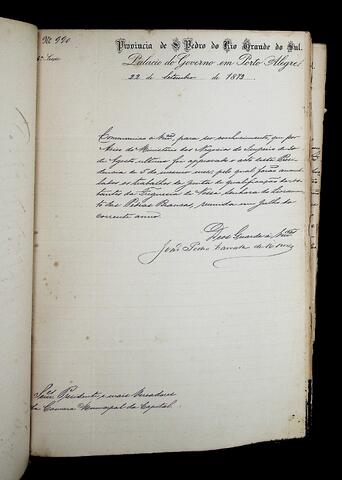 Nº 990
Provincia de S. Pedro do Rio Grande do Sul.
Palacio do Governo em Porto Alegre,
22 de setembro de 1873.
Communico a para seu conhecimento, que por
Aviso do Ministerio dos Negocios do Imperio de
de Agosto ultimo foi approvado o acto desta Presi-
dencia de 5 do mesmo mez, pelo qual foram annul-
lados os trabalhos da Junta de qualificação de vo-
tantes da Freguezia de
Pedras Brancas, reunida em Julho do
corrente anno.
Deos Guarde a
João Pedro Carvalho de Moraes
Senr. Presidente e mais Vereadores
da Camara Municipal da Capital.